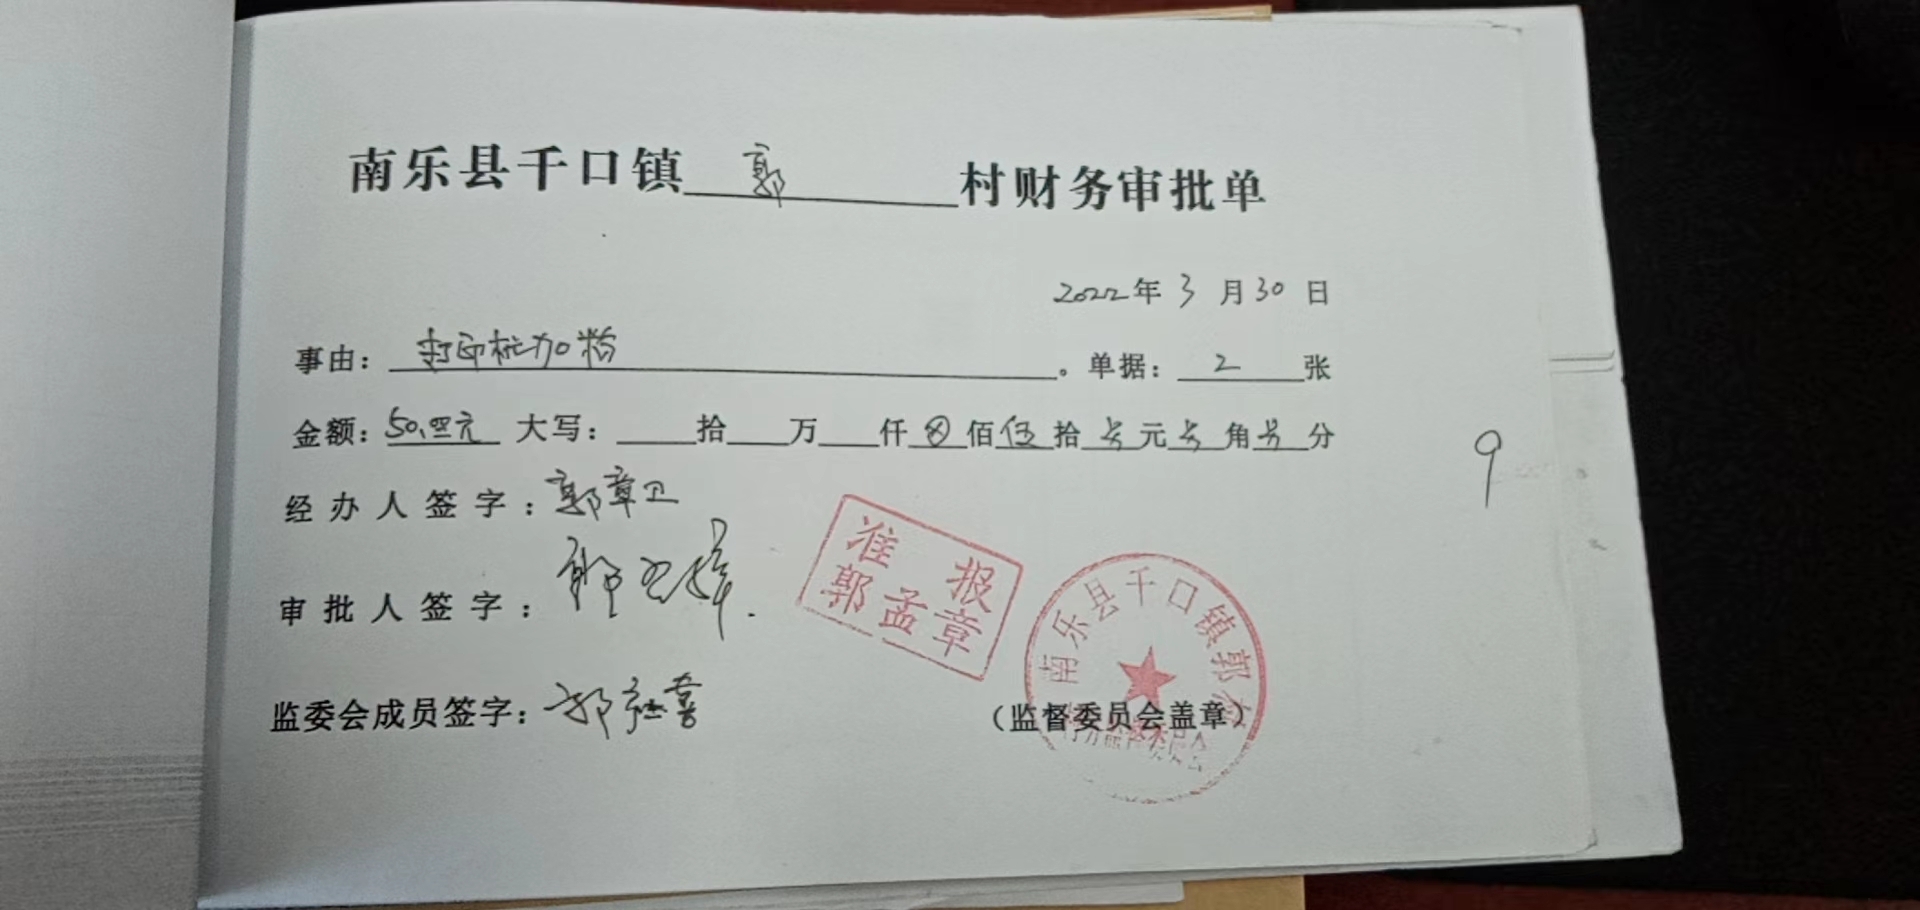 南乐县千口镇 郭 村财务审批单
2022年 3 月 30 日
事由： 打印机加粉 。单据： 2 张
金额：50.00元 大写： 拾 万 仟 ⊗ 佰 伍 拾 元 角 分
9
经办人签字：郭章卫
审批人签字：郭
监委会成员签字：郭 喜
准 报
郭孟章
南乐县千口镇郭村
村务监督委员会
（监督委员会盖章）